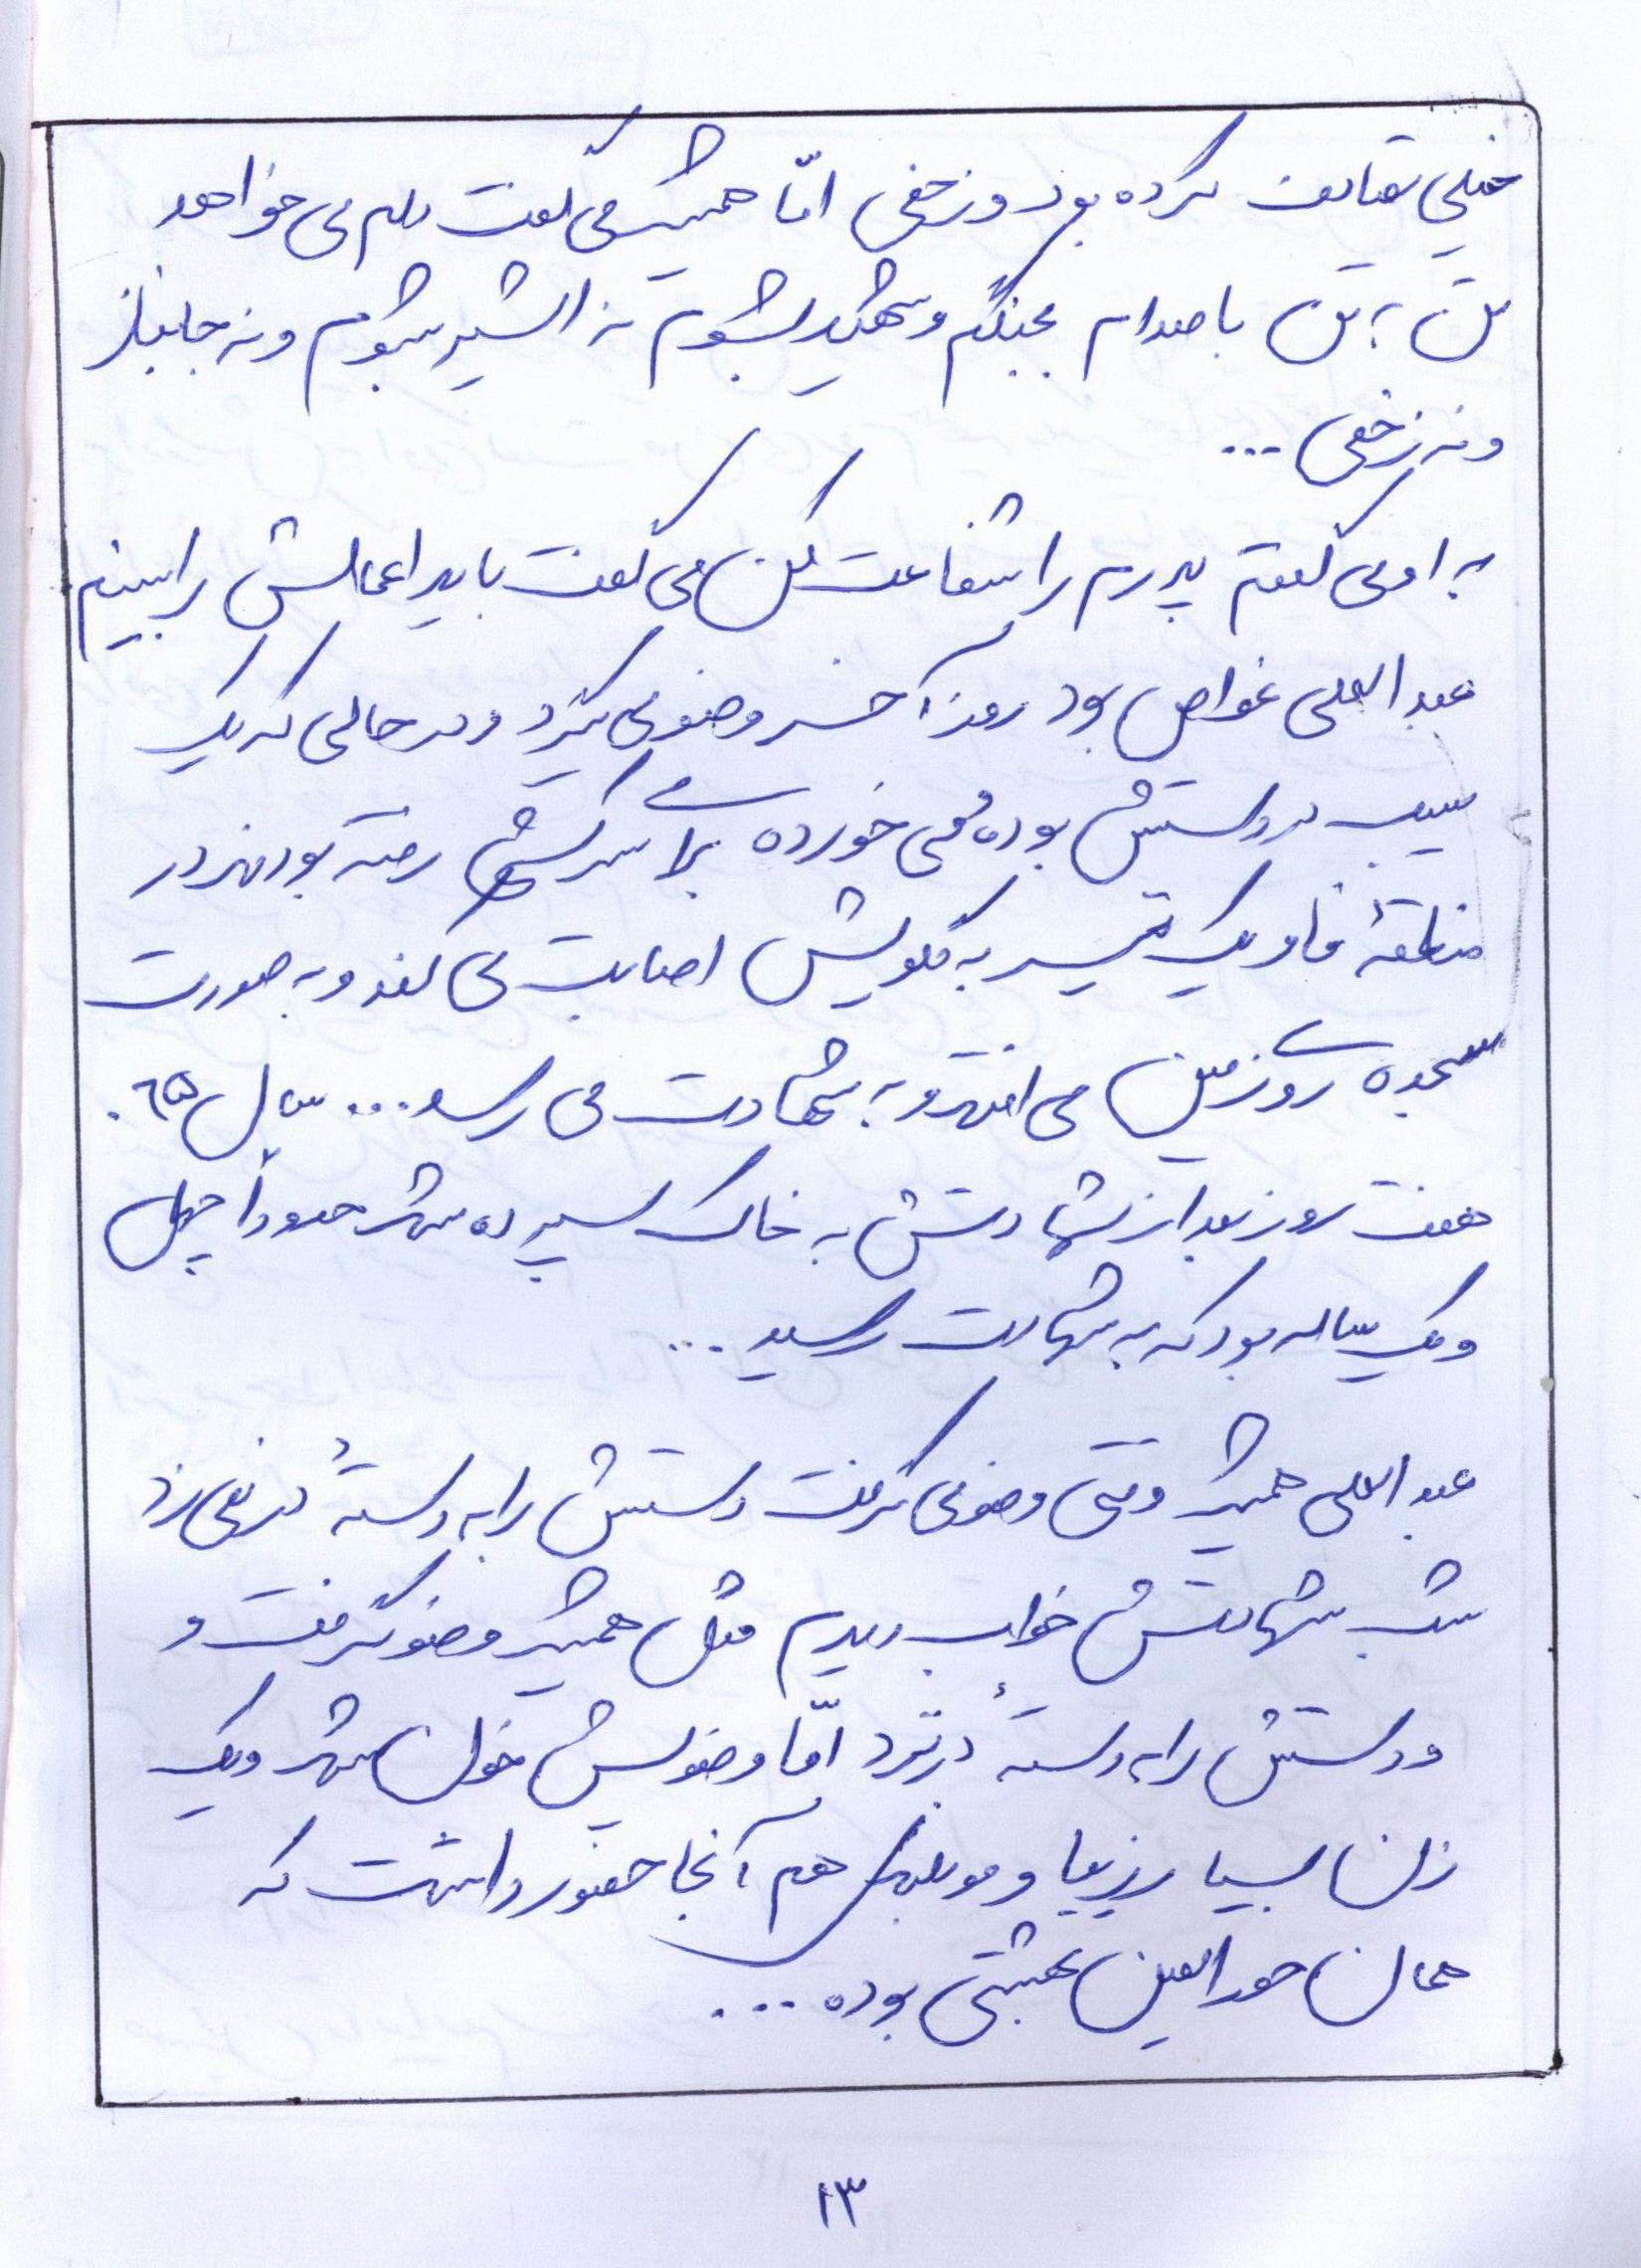 خیلی شکایت کرده بود و زخمی امّا همیشه می گفت دلم می خواهد
تن به تن با صدام بجنگم و شهید بشوم نه اسیر بشوم و نه جانباز
و نه زخمی ...
به او می گفتم پدرم را شفاعت کن می گفت باید اعمالش را ببینم
عبدالعلی غواص بود روز آخر وضو می گیرد و در حالی که یک
سیب در دستش بوده و می خورده برای سرکشی رفته بودند در
منطقهٔ فاو یک تیر به گلویش اصابت می کند و به صورت
سجده روی زمین می افتد و به شهادت می رسد ... سال ٦٥.
هفت روز بعد از شهادتش به خاک سپرده شد حدوداً چهل
و یک ساله بود که به شهادت رسید ...
عبدالعلی همیشه وقتی وضو می گرفت دستش را به دستهٔ در نمی زد
شب شهادتش خواب دیدم مثل همیشه وضو گرفت و
و دستش را به دستهٔ در نزد امّا وضویش خون شد و یک
زن بسیار زیبا و مو بلندی هم آنجا حضور داشت که
همان حورالعین بهشتی بوده ....
١٣